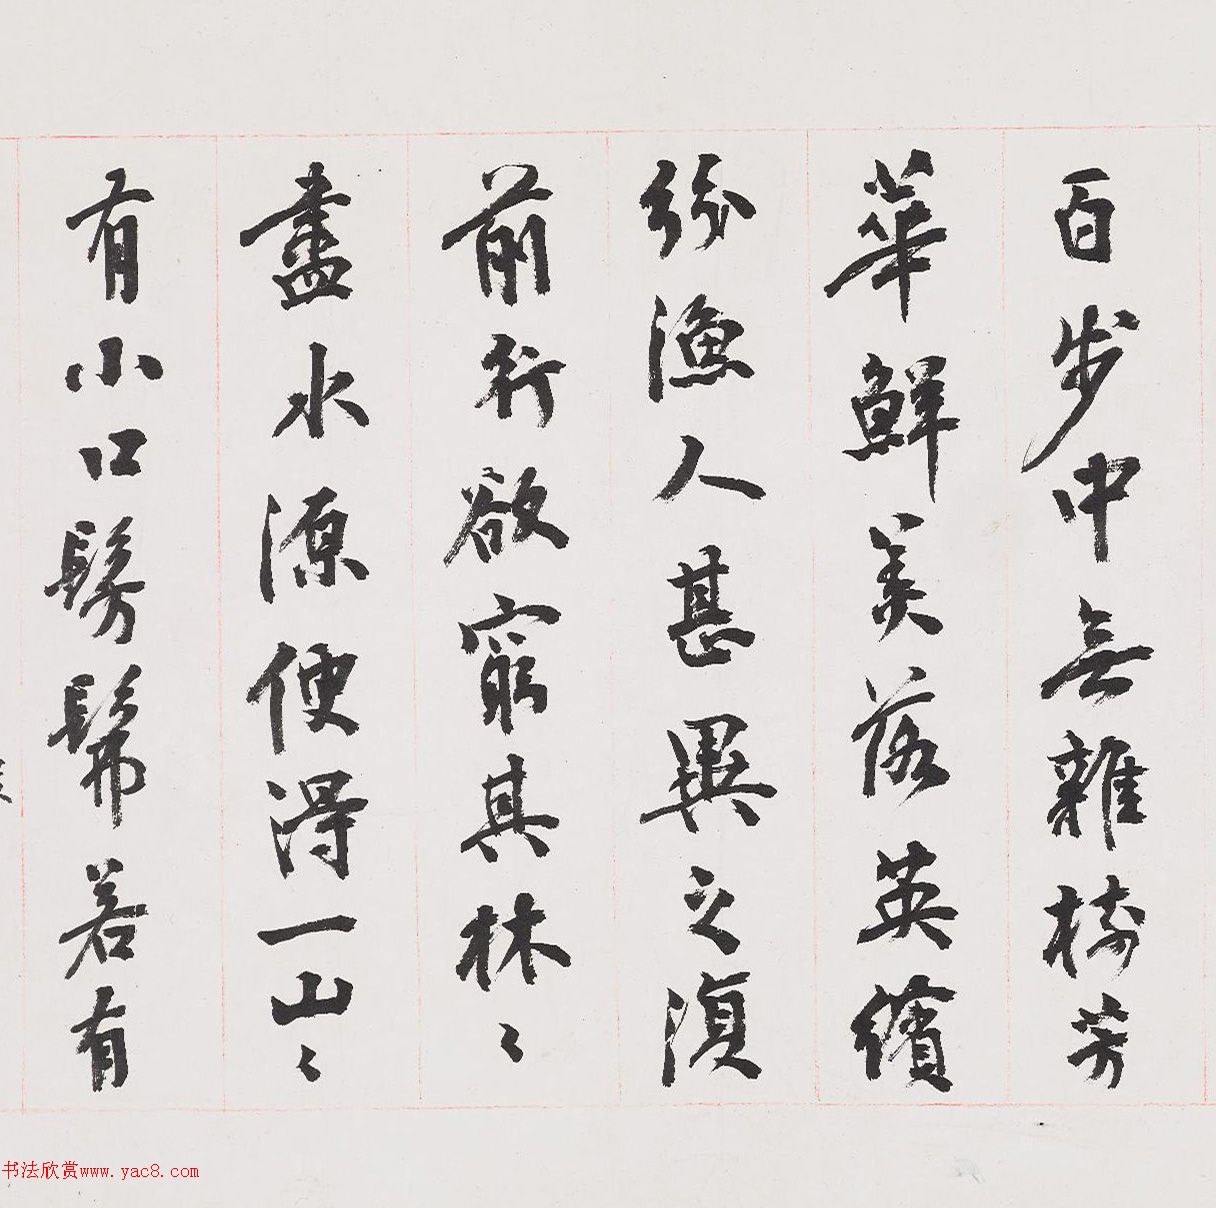 百步中無雜樹芳
華鮮美落英繽
紛漁人甚異之須
前行欲窮其林〻
盡水源便得一山〻
有小口髣髴若有
书法欣赏www.yac8.com